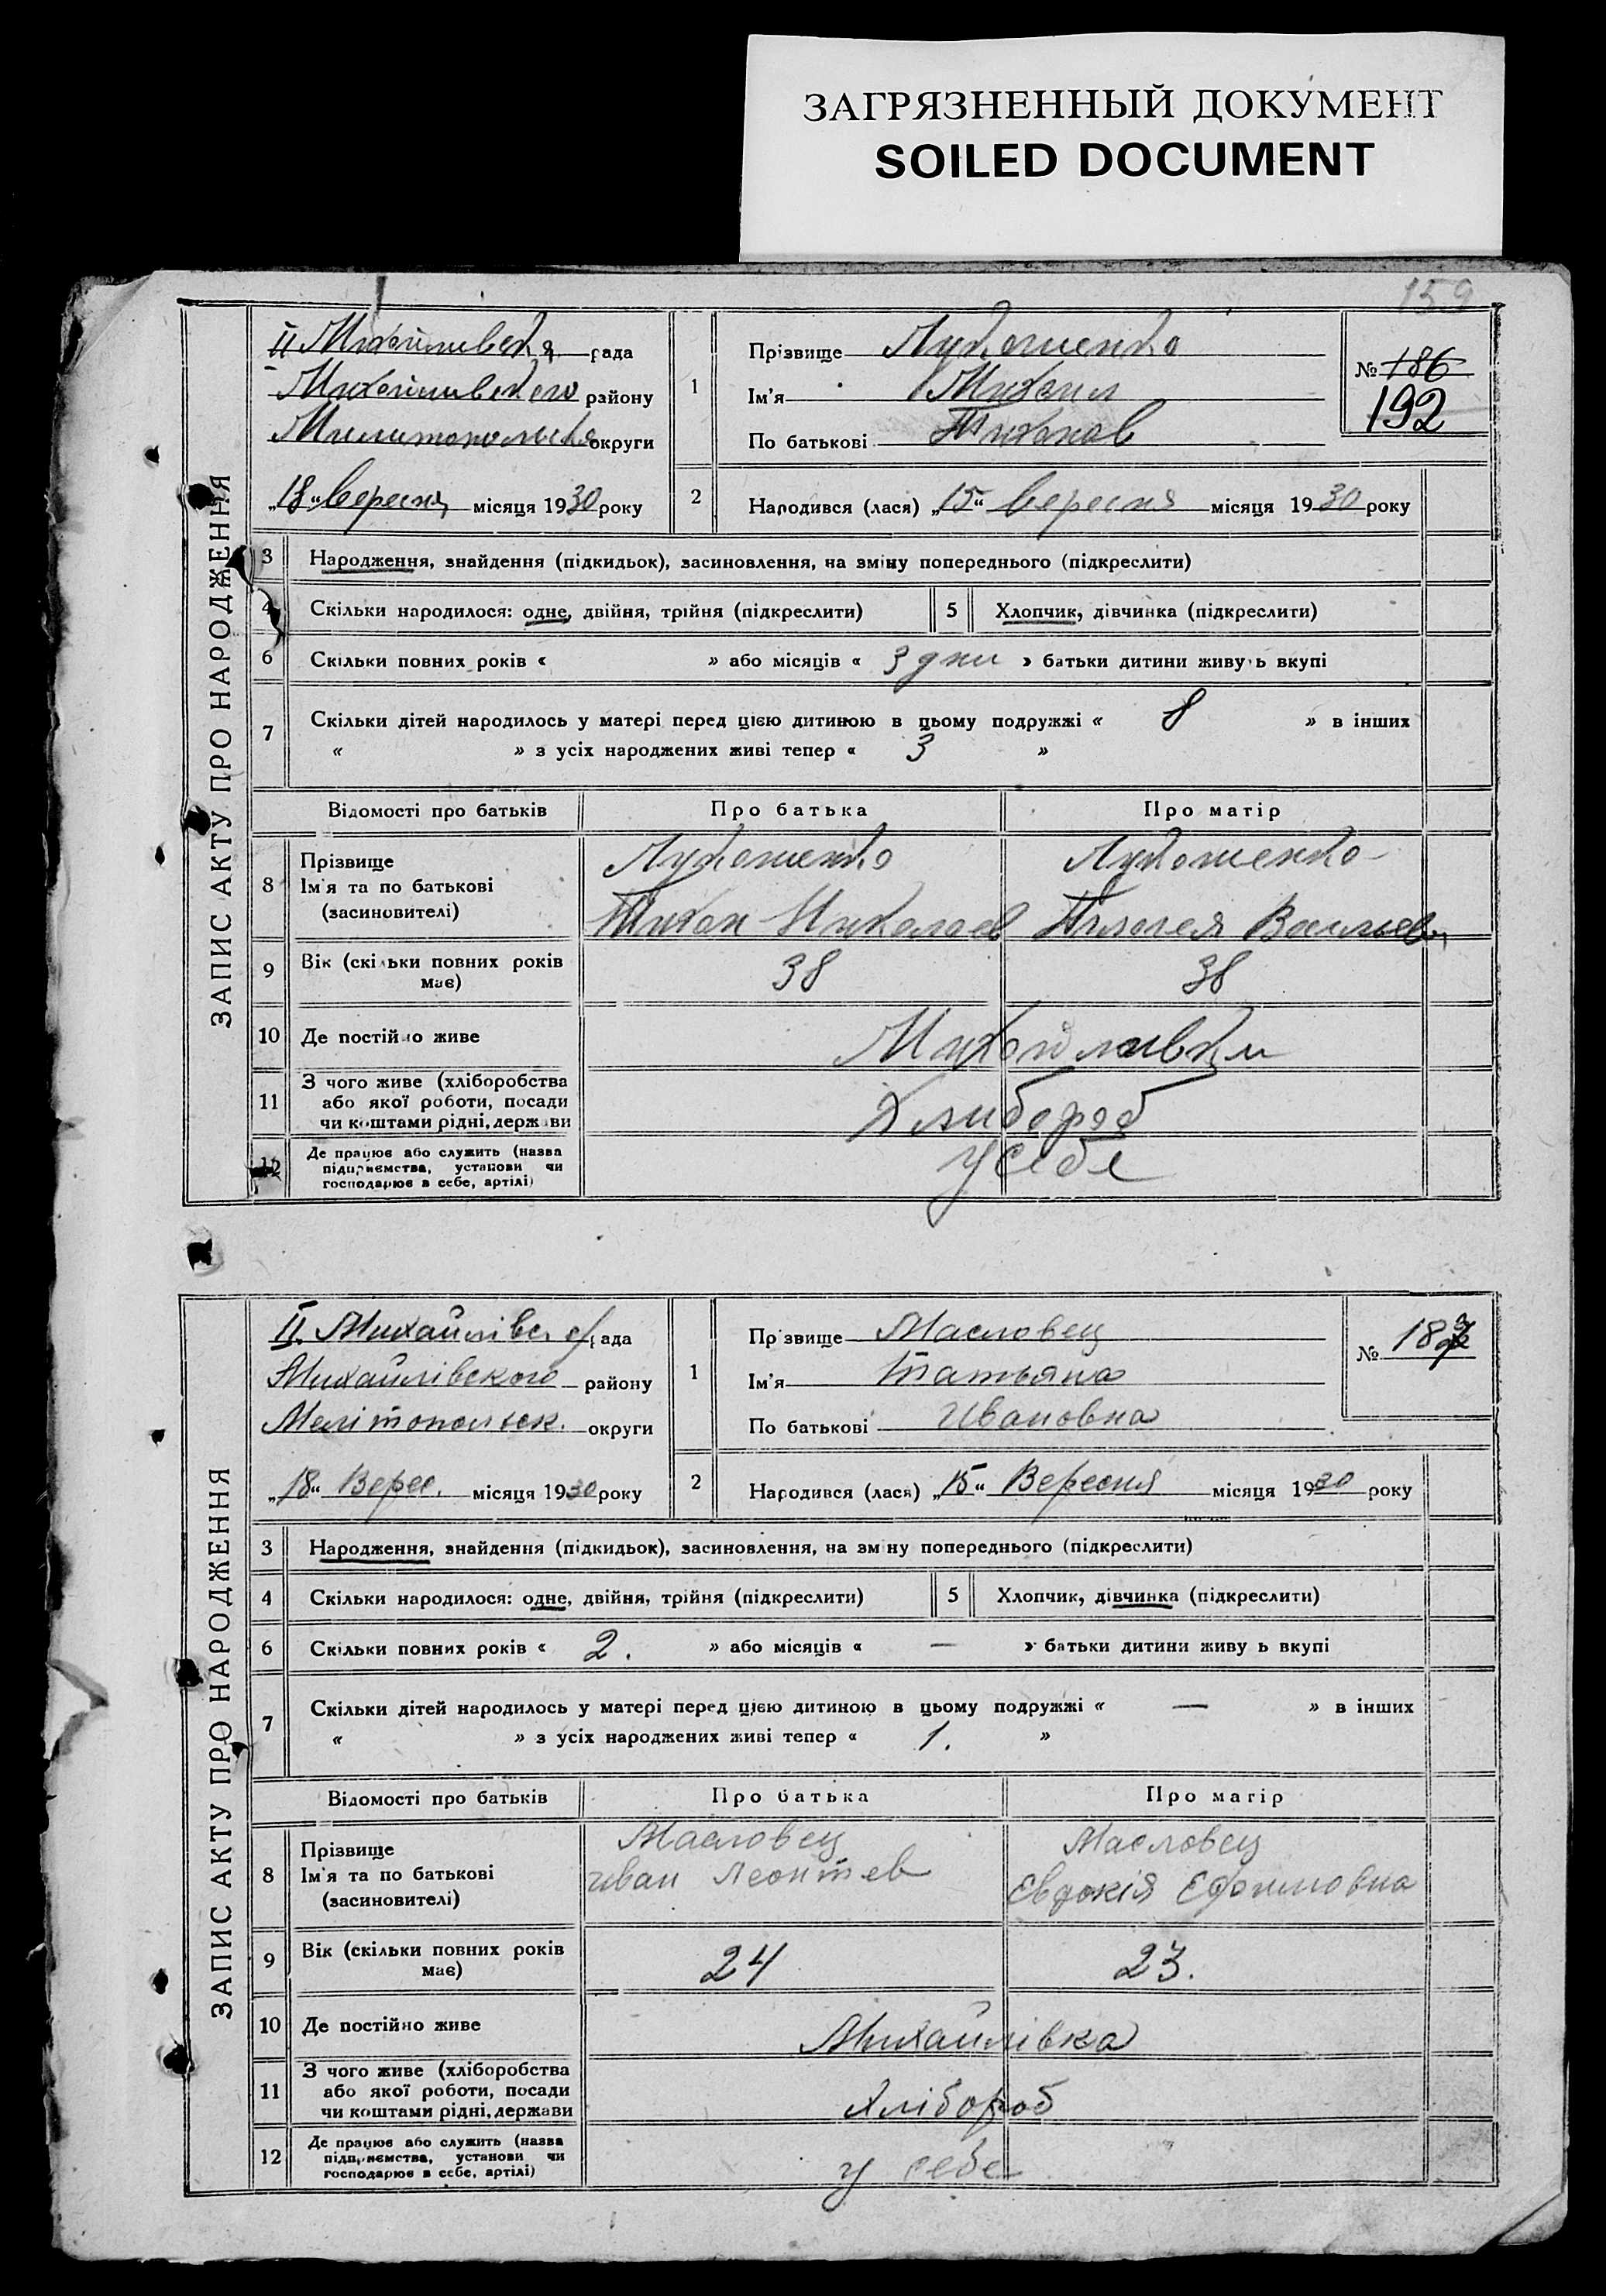 ЗАГРЯЗНЕННЫЙ ДОКУМЕНТ
SOILED DOCUMENT
159
ЗАПИС АКТУ ПРО НАРОДЖЕННЯ
II Михайливська рада
Михайливського району
Милитопольська округи
„18“ вересня місяця 1930 року
1
Прізвище Лукашенко
Ім'я Михаил
По батькові Тихонов
№ 186
192
2
Народився (лася) „15“ вересня місяця 1930 року
3 Народження, знайдення (підкидьок), засиновлення, на зміну попереднього (підкреслити)
4 Скільки народилося: одне, двійня, трійня (підкреслити) 5 Хлопчик, дівчинка (підкреслити)
6 Скільки повних років « » або місяців « 3 дни » батьки дитини живуть вкупі
7 Скільки дітей народилось у матері перед цією дитиною в цьому подружжі « 8 » в інших
« » з усіх народжених живі тепер « 3 »
Відомості про батьків Про батька Про матір
8 Прізвище
Ім'я та по батькові
(засиновителі)
Лукашенко
Тихон Николаев
Лукашенко
Пилагея Васильев
9 Вік (скільки повних років має) 38 38
10 Де постійно живе Михайливки
11 З чого живе (хліборобства
або якої роботи, посади
чи коштами рідні, держави
Хлибороб
12 Де працює або служить (назва
підприємства, установи чи
господарює в себе, артілі)
у себе
ЗАПИС АКТУ ПРО НАРОДЖЕННЯ
II. Михайлівс рада
Михайлівского району
Мелітопольск. округи
„18“ Верес. місяця 1930 року
1
Прізвище Масловец
Ім'я Татьяна
По батькові Ивановна
№
2
Народився (лася) „15“ Вересня місяця 1930 року
3 Народження, знайдення (підкидьок), засиновлення, на зміну попереднього (підкреслити)
4 Скільки народилося: одне, двійня, трійня (підкреслити) 5 Хлопчик, дівчинка (підкреслити)
6 Скільки повних років « 2. » або місяців « — » батьки дитини живу ь вкупі
7 Скільки дітей народилось у матері перед цією дитиною в цьому подружжі « — » в інших
« » з усіх народжених живі тепер « 1. »
Відомості про батьків Про батька Про матір
8 Прізвище
Ім'я та по батькові
(засиновителі)
Масловец
Иван Леонтев
Масловец
Евдокія Ефимовна
9 Вік (скільки повних років має) 24 23.
10 Де постійно живе Михайлівка
11 З чого живе (хліборобства
або якої роботи, посади
чи коштами рідні, держави
Хлібороб
12 Де працює або служить (назва
підприємства, установи чи
господарює в себе, артілі)
у себе